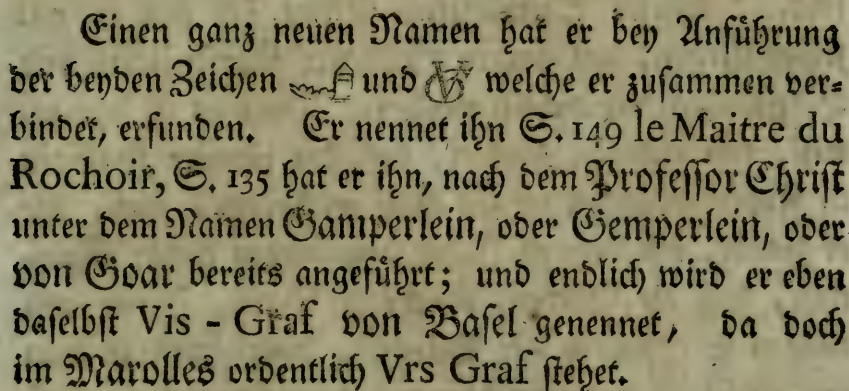 Einen ganz neuen Namen hat er bey Anführung
der beyden Zeichen und welche er zusammen ver=
bindet, erfunden. Er nennet ihn S. 149 le Maitre du
Rochoir, S. 135 hat er ihn, nach dem Professor Christ
unter dem Namen Gamperlein, oder Gemperlein, oder
von Goar bereits angeführt; und endlich wird er eben
daselbst Vis - Graf von Basel genennet, da doch
im Marolles ordentlich Vrs Graf stehet.